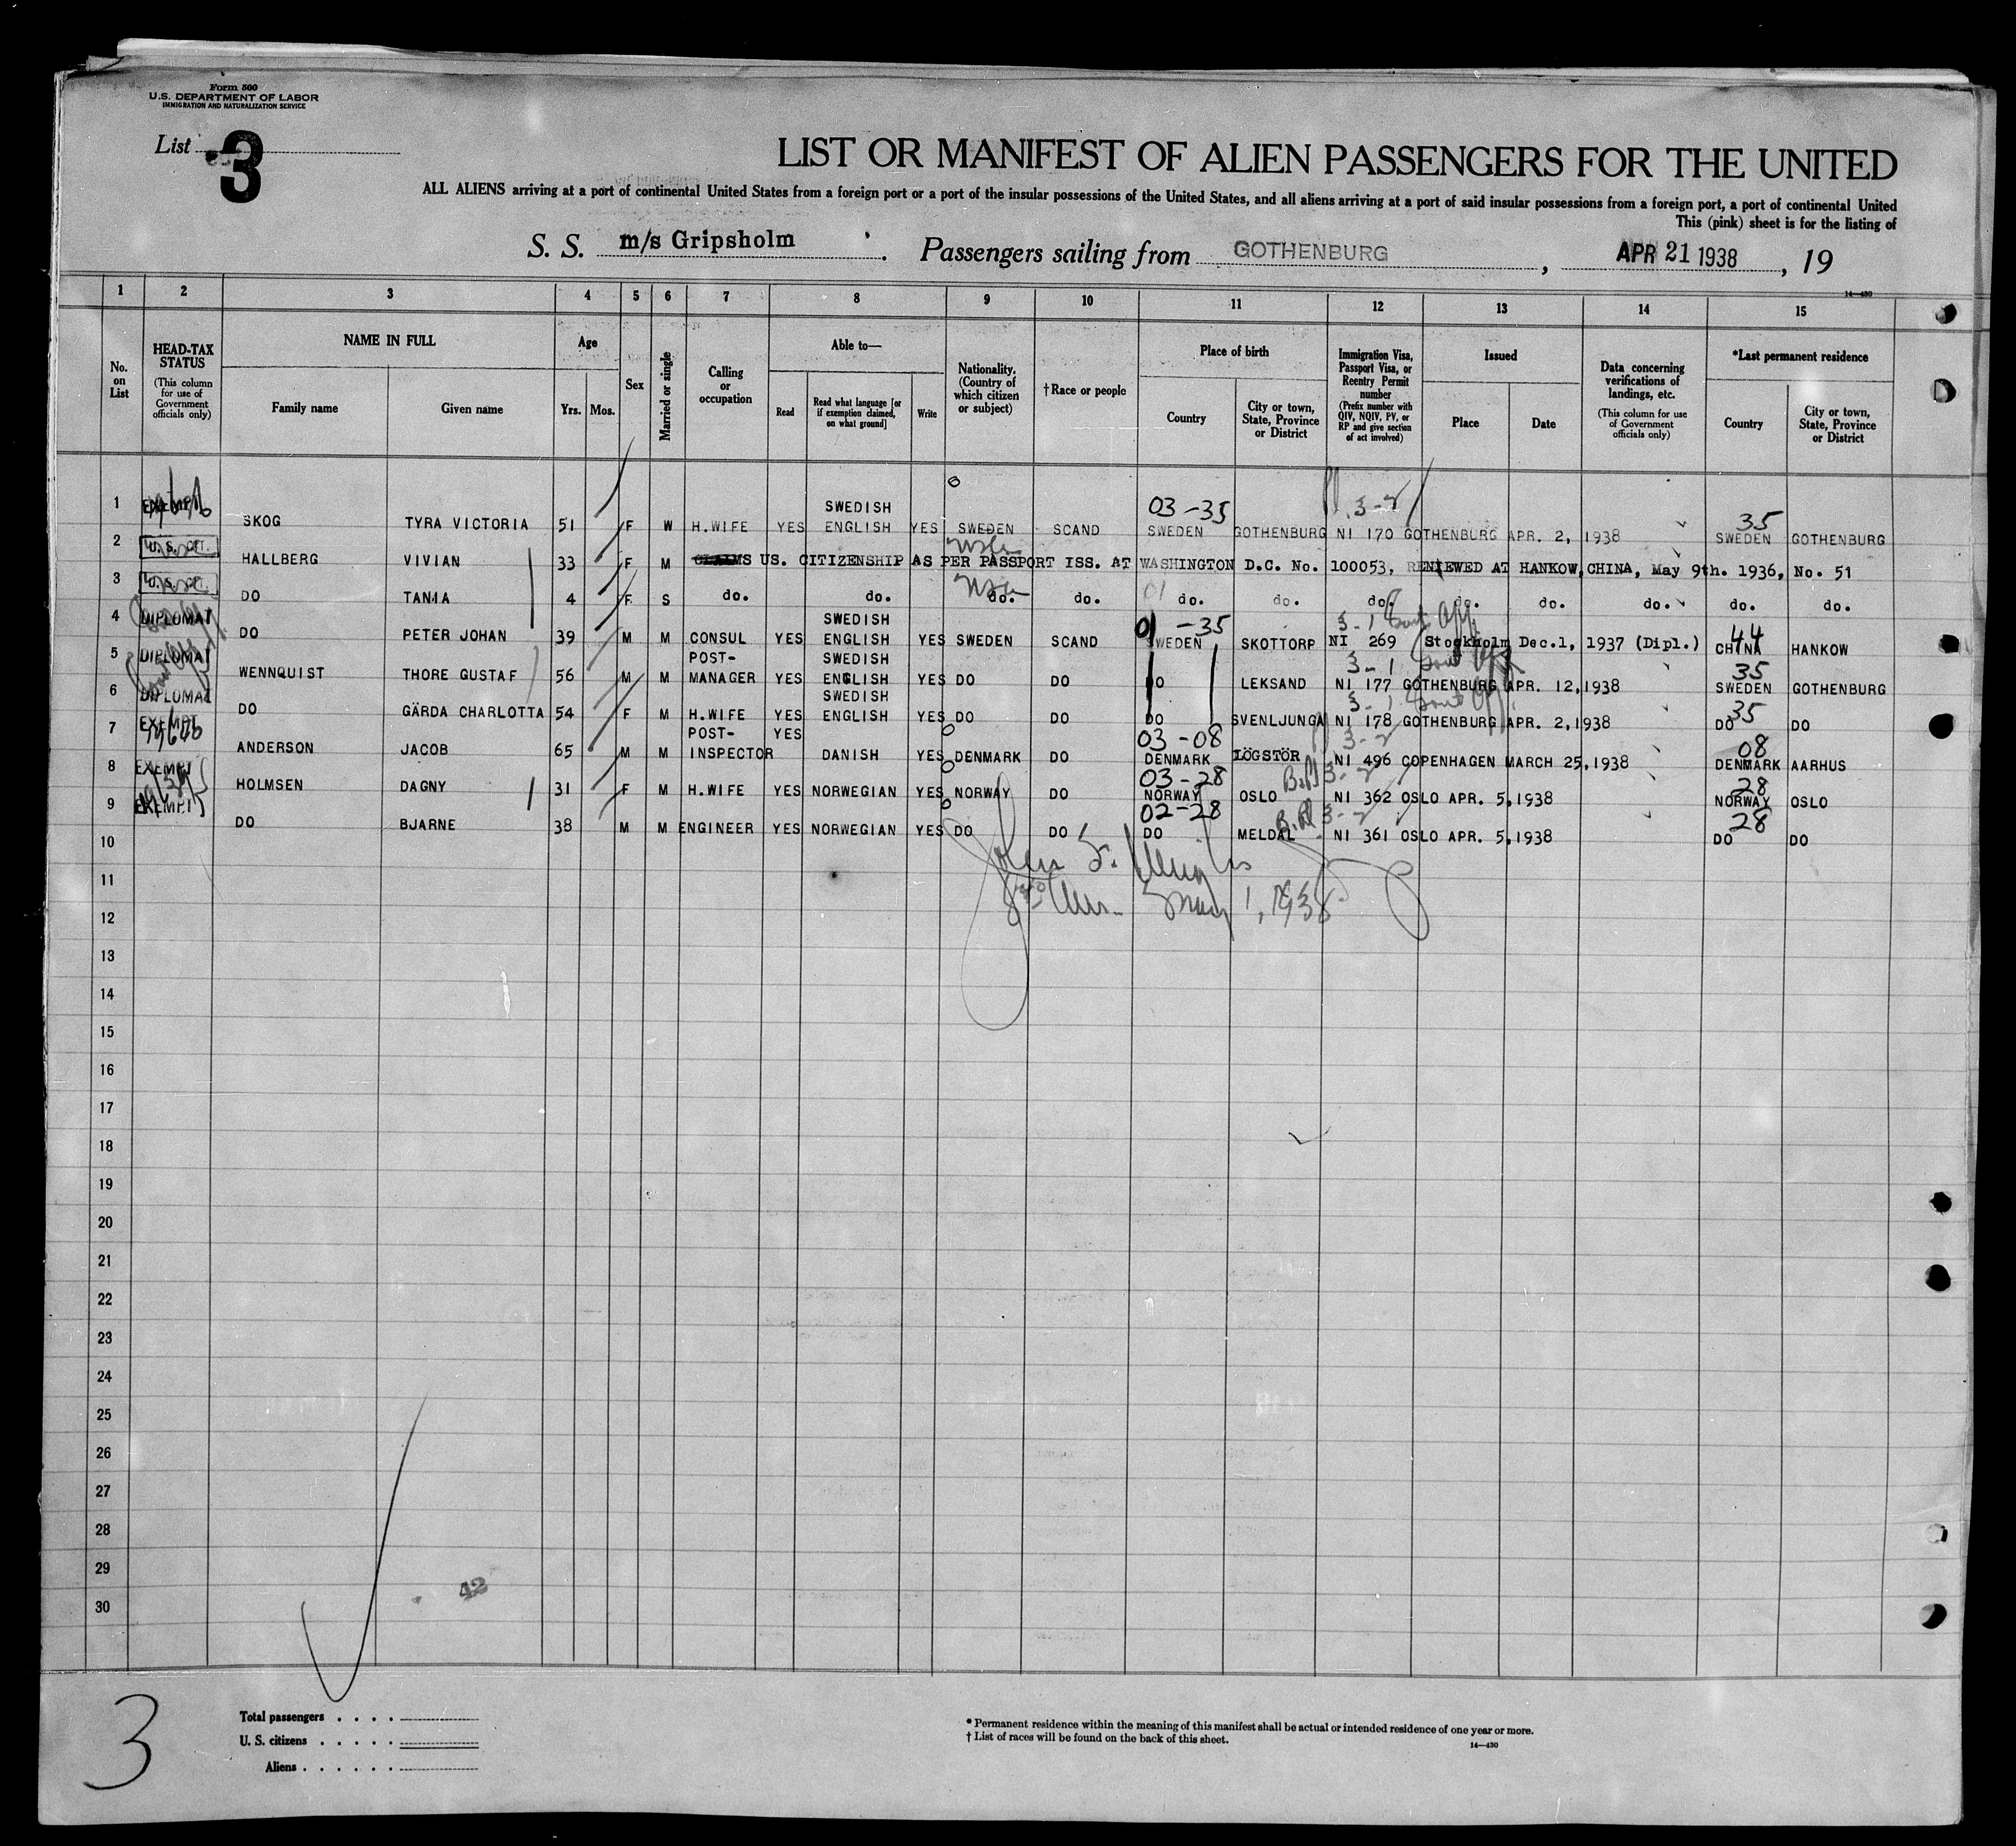 Form 500
U.S. DEPARTMENT OF LABOR
IMMIGRATION AND NATURALIZATION SERVICE
List 3
LIST OR MANIFEST OF ALIEN PASSENGERS FOR THE UNITED
ALL ALIENS arriving at a port of continental United States from a foreign port or a port of the insular possessions of the United States, and all aliens arriving at a port of said insular possessions from a foreign port, a port of continental United
This (pink) sheet is for the listing of
S. S. m/s Gripsholm . Passengers sailing from GOTHENBURG , APR 21 1938 , 19
14—430
1 2 3 4 5 6 7 8 9 10 11 12 13 14 15
No. on List
HEAD-TAX STATUS (This column for use of Government officials only)
NAME IN FULL
Family name
Given name
Age
Yrs. Mos.
Sex
Married or single
Calling or occupation
Able to—
Read
Read what language [or if exemption claimed, on what ground]
Write
Nationality. (Country of which citizen or subject)
† Race or people
Place of birth
Country
City or town, State, Province or District
Immigration Visa, Passport Visa, or Reentry Permit number (Prefix number with QIV, NQIV, PV, or RP and give section of act involved)
Issued
Place
Date
Data concerning verifications of landings, etc. (This column for use of Government officials only)
*Last permanent residence
Country
City or town, State, Province or District
03-35 3-2 35
1 EXEMPT SKOG TYRA VICTORIA 51 F W H.WIFE YES SWEDISH ENGLISH YES SWEDEN SCAND SWEDEN GOTHENBURG NI 170 GOTHENBURG APR. 2, 1938 SWEDEN GOTHENBURG
2 U. S. CIT. HALLBERG VIVIAN 33 F M CLAIMS US. CITIZENSHIP AS PER PASSPORT ISS. AT WASHINGTON D.C. No. 100053, RENIEWED AT HANKOW,CHINA, May 9th. 1936, No. 51
3 U. S. CIT. DO TANIA 4 F S do. do. do. do. 01 do. do. do. do. do. do. do. do.
01-35 3-1 44
4 DIPLOMAT DO PETER JOHAN 39 M M CONSUL YES SWEDISH ENGLISH YES SWEDEN SCAND SWEDEN SKOTTORP NI 269 Stockholm Dec.1, 1937 (Dipl.) CHINA HANKOW
3-1 35
5 DIPLOMAT WENNQUIST THORE GUSTAF 56 M M POST-MANAGER YES SWEDISH ENGLISH YES DO DO DO LEKSAND NI 177 GOTHENBURG APR. 12,1938 SWEDEN GOTHENBURG
3-1 35
6 DIPLOMAT DO GÄRDA CHARLOTTA 54 F M H.WIFE YES SWEDISH ENGLISH YES DO DO DO SVENLJUNGA NI 178 GOTHENBURG APR. 2,1938 DO DO
03-08 3-2 08
7 EXEMPT ANDERSON JACOB 65 M M POST-INSPECTOR YES DANISH YES DENMARK DO DENMARK LÖGSTÖR NI 496 COPENHAGEN MARCH 25,1938 DENMARK AARHUS
03-28 3-2 28
8 EXEMPT HOLMSEN DAGNY 31 F M H.WIFE YES NORWEGIAN YES NORWAY DO NORWAY OSLO NI 362 OSLO APR. 5,1938 NORWAY OSLO
02-28 3-2 28
9 EXEMPT DO BJARNE 38 M M ENGINEER YES NORWEGIAN YES DO DO DO MELDAL NI 361 OSLO APR. 5,1938 DO DO
10
11
May 1, 1938
12
13
14
15
16
17
18
19
20
21
22
23
24
25
26
27
28
29
42
30
3
Total passengers . . . .
U. S. citizens . . . . .
Aliens . . . . . .
* Permanent residence within the meaning of this manifest shall be actual or intended residence of one year or more.
† List of races will be found on the back of this sheet.
14—430